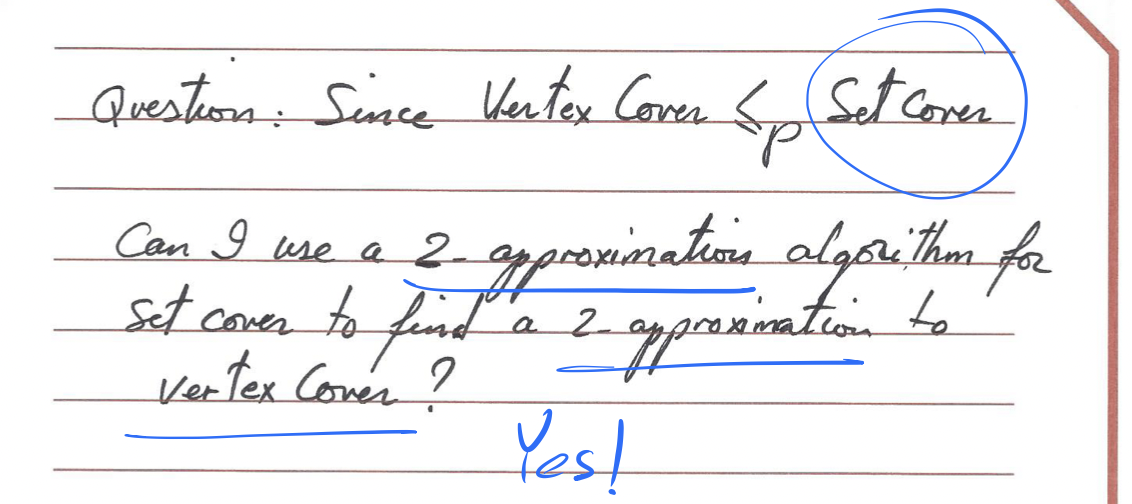 Question: Since Vertex Cover ≤p Set Cover
Can I use a 2-approximation algorithm for
set cover to find a 2-approximation to
vertex Cover?
Yes!